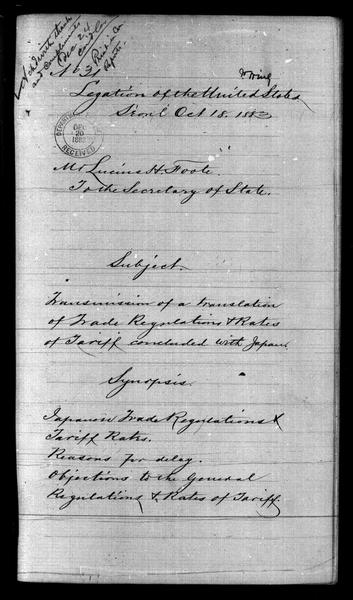 and Compliments
Dec 24
No 31
Legation of the United States
Séoul Oct 18. 1883
DEC
20
1883
RECEIVED
Mr Lucius H. Foote.
To the Secretary of State.
Subject.
Transmission of a translation
of Trade Regulations & Rates
of Tariff concluded with Japan.
Synopsis.
Japanese Trade Regulations &
Tariff Rates.
Reasons for delay.
Objections to the General
Regulations & Rates of Tariff.